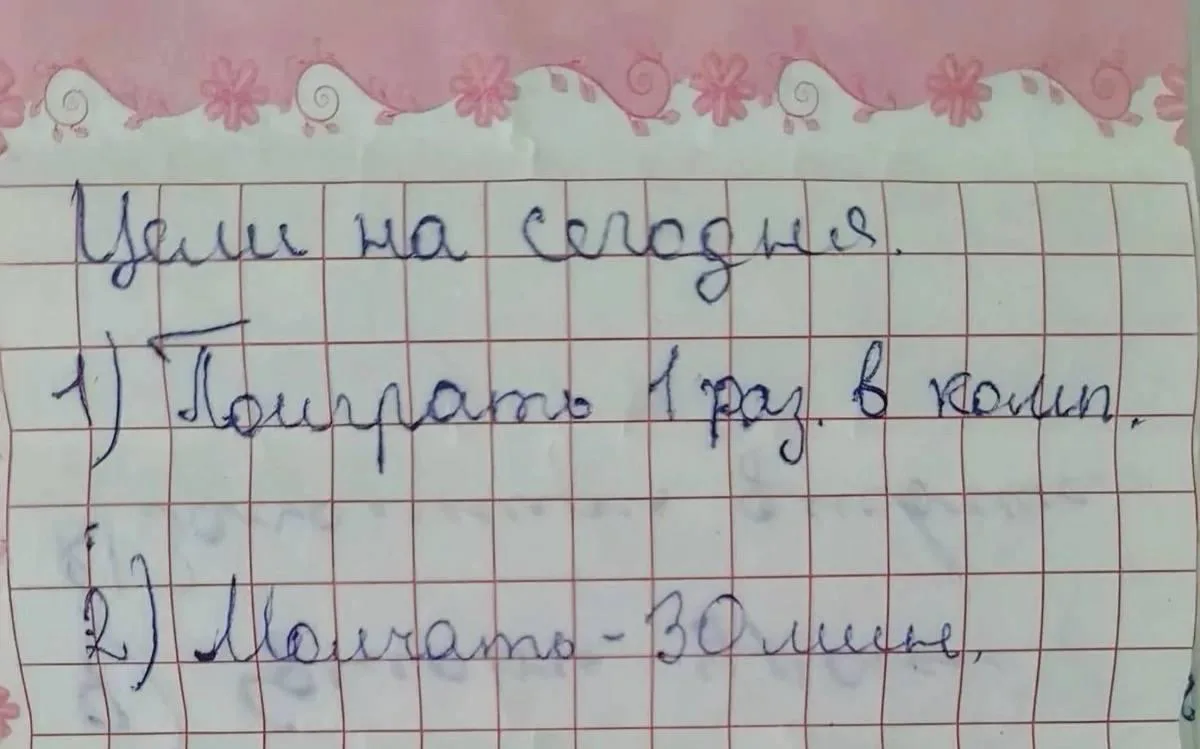 Цели на сегодня.
1) Поиграть 1 раз. в комп.
2) Молчать - 30 мин.